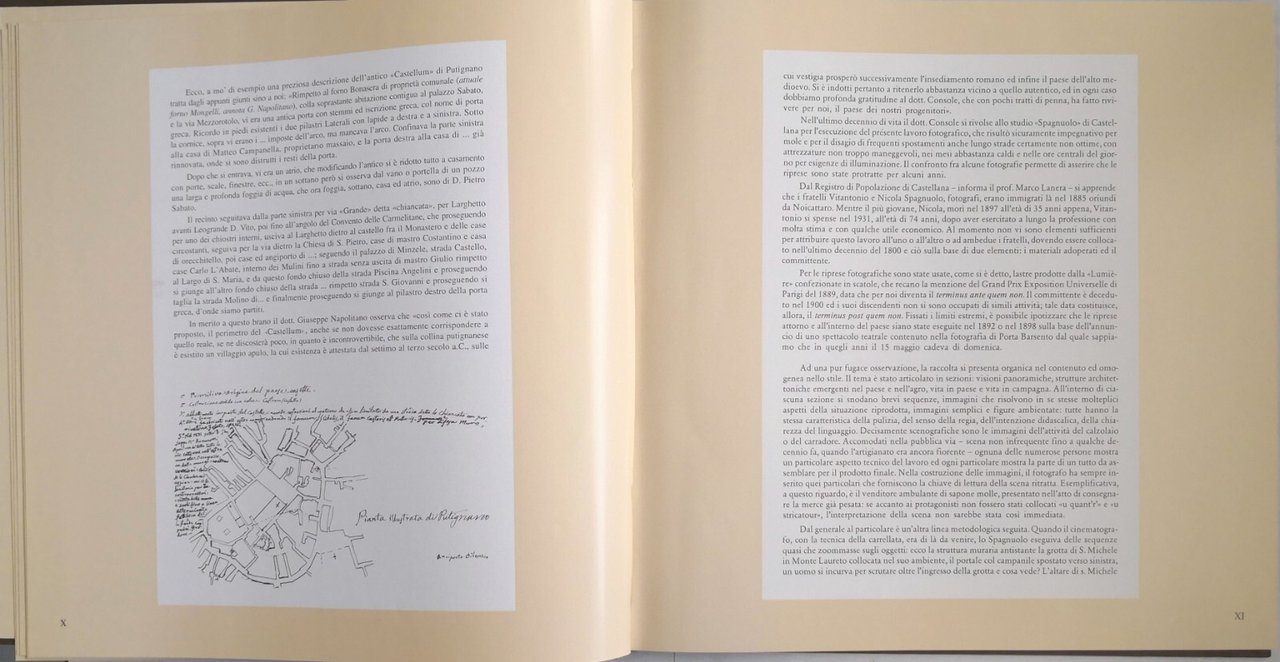 Ecco, a mo' di esempio una preziosa descrizione dell'antico «Castellum» di Putignano
tratta dagli appunti giunti sino a noi: «Rimpetto al forno Bonasera di proprietà comunale (attuale
forno Mongelli, annota G. Napolitano), colla soprastante abitazione contigua al palazzo Sabato,
e la via Mezzorotolo, vi era una antica porta con stemmi ed iscrizione greca, col nome di porta
greca. Ricordo in piedi esistenti i due pilastri Laterali con lapide a destra e a sinistra. Sotto
la cornice, sopra vi erano i ... imposte dell'arco, ma mancava l'arco. Confinava la parte sinistra
alla casa di Matteo Campanella, proprietario massaio, e la porta destra alla casa di ... già
rinnovata, onde si sono distrutti i resti della porta.
Dopo che si entrava, vi era un atrio, che modificando l'antico si è ridotto tutto a casamento
con porte, scale, finestre, ecc., in un sottano però si osserva dal vano o portella di un pozzo
una larga e profonda foggia di acqua, che ora foggia, sottano, casa ed atrio, sono di D. Pietro
Sabato.
Il recinto seguitava dalla parte sinistra per via «Grande» detta «chiancata», per Larghetto
avanti Leogrande D. Vito, poi fino all'angolo del Convento delle Carmelitane, che proseguendo
per uno dei chiostri interni, usciva al Larghetto dietro al castello fra il Monastero e delle case
circostanti, seguiva per la via dietro la Chiesa di S. Pietro, case di mastro Costantino e casa
di orecchitello, poi case ed angiporto di ...; seguendo il palazzo di Minzele, strada Castello,
case Carlo L'Abate, interno dei Mulini fino a strada senza uscita di mastro Giulio rimpetto
al Largo di S. Maria, e da questo fondo chiuso della strada Piscina Angelini e proseguendo
si giunge all'altro fondo chiuso della strada ... rimpetto strada S. Giovanni e proseguendo si
taglia la strada Molino di... e finalmente proseguendo si giunge al pilastro destro della porta
greca, d'onde siamo partiti.
In merito a questo brano il dott. Giuseppe Napolitano osserva che «così come ci è stato
proposto, il perimetro del «Castellum», anche se non dovesse esattamente corrispondere a
quello reale, se ne discosterà poco, in quanto è incontrovertibile, che sulla collina putignanese
è esistito un villaggio apulo, la cui esistenza è attestata dal settimo al terzo secolo a.C., sulle
Pianta illustrata di Putignano
X
cui vestigia prosperò successivamente l'insediamento romano ed infine il paese dell'alto me-
dioevo. Si è indotti pertanto a ritenerlo abbastanza vicino a quello autentico, ed in ogni caso
dobbiamo profonda gratitudine al dott. Console, che con pochi tratti di penna, ha fatto rivi-
vere per noi, il paese dei nostri progenitori».
Nell'ultimo decennio di vita il dott. Console si rivolse allo studio «Spagnuolo» di Castel-
lana per l'esecuzione del présente lavoro fotografico, che risultò sicuramente impegnativo per
mole e per il disagio di frequenti spostamenti anche lungo strade certamente non ottime, con
attrezzature non troppo maneggevoli, nei mesi abbastanza caldi e nelle ore centrali del gior-
no per esigenze di illuminazione. Il confronto fra alcune fotografie permette di asserire che le
riprese sono state protratte per alcuni anni.
Dal Registro di Popolazione di Castellana – informa il prof. Marco Lanera – si apprende
che i fratelli Vitantonio e Nicola Spagnuolo, fotografi, erano immigrati là nel 1885 oriundi
da Noicattaro. Mentre il più giovane, Nicola, morì nel 1897 all'età di 35 anni appena, Vitan-
tonio si spense nel 1931, all'età di 74 anni, dopo aver esercitato a lungo la professione con
molta stima e con qualche utile economico. Al momento non vi sono elementi sufficienti
per attribuire questo lavoro all'uno o all'altro o ad ambedue i fratelli, dovendo essere colloca-
to nell'ultimo decennio del 1800 e ciò sulla base di due elementi: i materiali adoperati ed il
committente.
Per le riprese fotografiche sono state usate, come si è detto, lastre prodotte dalla «Lumiè-
re» confezionate in scatole, che recano la menzione del Grand Prix Exposition Universelle di
Parigi del 1889, data che per noi diventa il terminus ante quem non. Il committente è decedu-
to nel 1900 ed i suoi discendenti non si sono occupati di simili attività; tale data costituisce,
allora, il terminus post quem non. Fissati i limiti estremi, è possibile ipotizzare che le riprese
attorno e all'interno del paese siano state eseguite nel 1892 o nel 1898 sulla base dell'annun-
cio di uno spettacolo teatrale contenuto nella fotografia di Porta Barsento dal quale sappia-
mo che in quegli anni il 15 maggio cadeva di domenica.
Ad una pur fugace osservazione, la raccolta si presenta organica nel contenuto ed omo-
genea nello stile. Il tema è stato articolato in sezioni: visioni panoramiche, strutture architet-
toniche emergenti nel paese e nell'agro, vita in paese e vita in campagna. All'interno di cia-
scuna sezione si snodano brevi sequenze, immagini che risolvono in se stesse molteplici
aspetti della situazione riprodotta, immagini semplici e figure ambientate: tutte hanno la
stessa caratteristica della pulizia, del senso della regia, dell'intenzione didascalica, della chia-
rezza del linguaggio. Decisamente scenografiche sono le immagini dell'attività del calzolaio
o del carradore. Accomodati nella pubblica via – scena non infrequente fino a qualche de-
cennio fa, quando l'artigianato era ancora fiorente – ognuna delle numerose persone mostra
un particolare aspetto tecnico del lavoro ed ogni particolare mostra la parte di un tutto da as-
semblare per il prodotto finale. Nella costruzione delle immagini, il fotografo ha sempre in-
serito quei particolari che forniscono la chiave di lettura della scena ritratta. Esemplificativa,
a questo riguardo, è il venditore ambulante di sapone molle, presentato nell'atto di consegna-
re la merce già pesata: se accanto ai protagonisti non fossero stati collocati «u quant'r'» e «u
stricatour», l'interpretazione della scena non sarebbe stata così immediata.
Dal generale al particolare è un'altra linea metodologica seguita. Quando il cinematogra-
fo, con la tecnica della carrellata, era di là da venire, lo Spagnuolo eseguiva delle sequenze
quasi che zoommasse sugli oggetti: ecco la struttura muraria antistante la grotta di S. Michele
in Monte Laureto collocata nel suo ambiente, il portale col campanile spostato verso sinistra,
un uomo si incurva per scrutare oltre l'ingresso della grotta e cosa vede? L'altare di s. Michele
XI